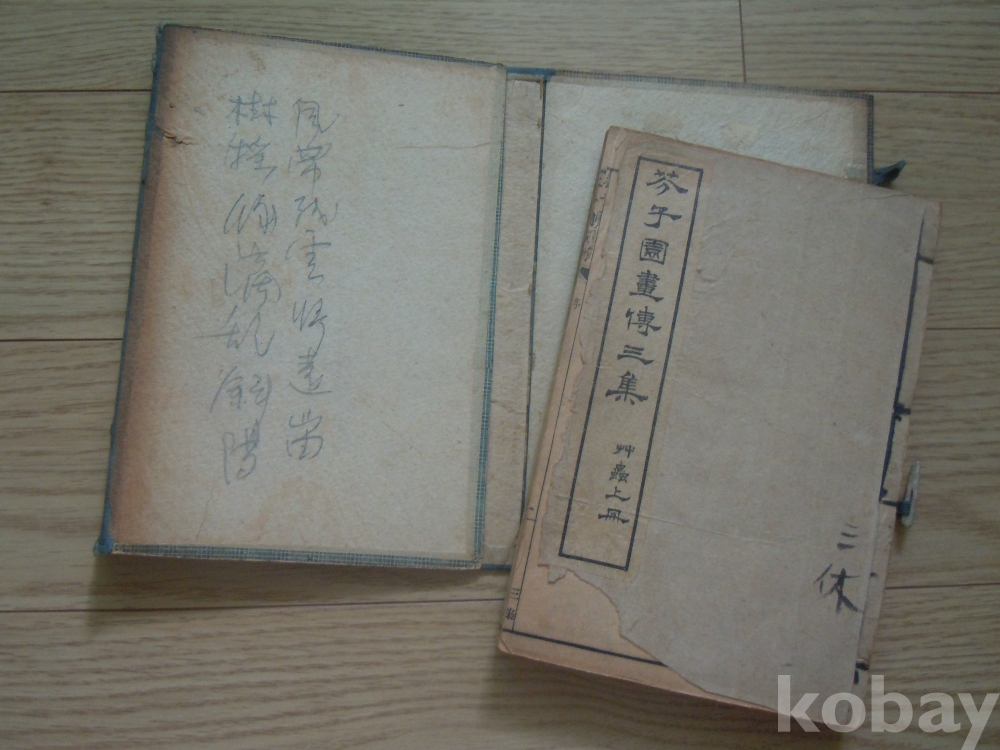 風帶残雲歸遠岫
樹搖餘滴乱斜陽
芥子園畫傳三集
艸蟲上冊
三休
kobay